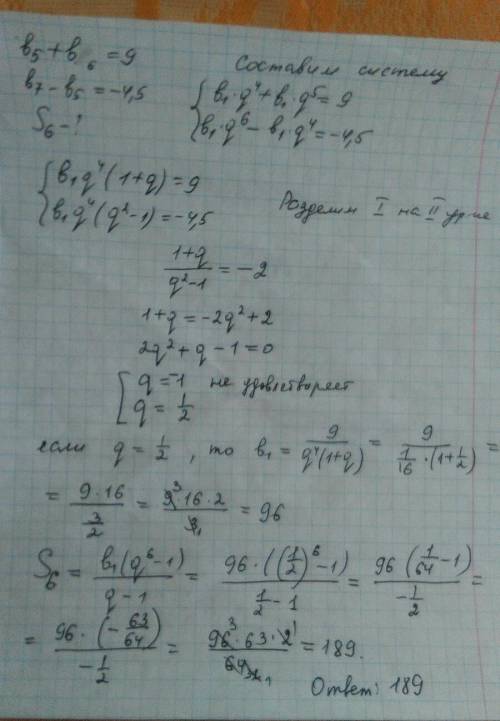 b₅ + b₆ = 9
b₇ − b₅ = −4,5
S₆ − ?
Составим систему
{ b₁·q⁴ + b₁·q⁵ = 9
b₁·q⁶ − b₁·q⁴ = −4,5
{ b₁q⁴(1+q) = 9
b₁q⁴(q²−1) = −4,5
Разделим I на II ур-ие
(1+q)/(q²−1) = −2
1+q = −2q²+2
2q²+q−1=0
[ q = −1 не удовлетворяет
q = 1/2
если q = 1/2, то b₁ = 9/(q⁴(1+q)) = 9/(1/16·(1+1/2)) =
= (9·16)/(3/2) = (9³ 16·2)/3₁ = 96
S₆ = b₁(q⁶−1)/(q−1) = 96·((1/2)⁶−1)/(1/2−1) = 96(1/64−1)/(−1/2) =
= 96·(−63/64)/(−1/2) = (96³·63·2¹)/64 = 189.
Ответ: 189